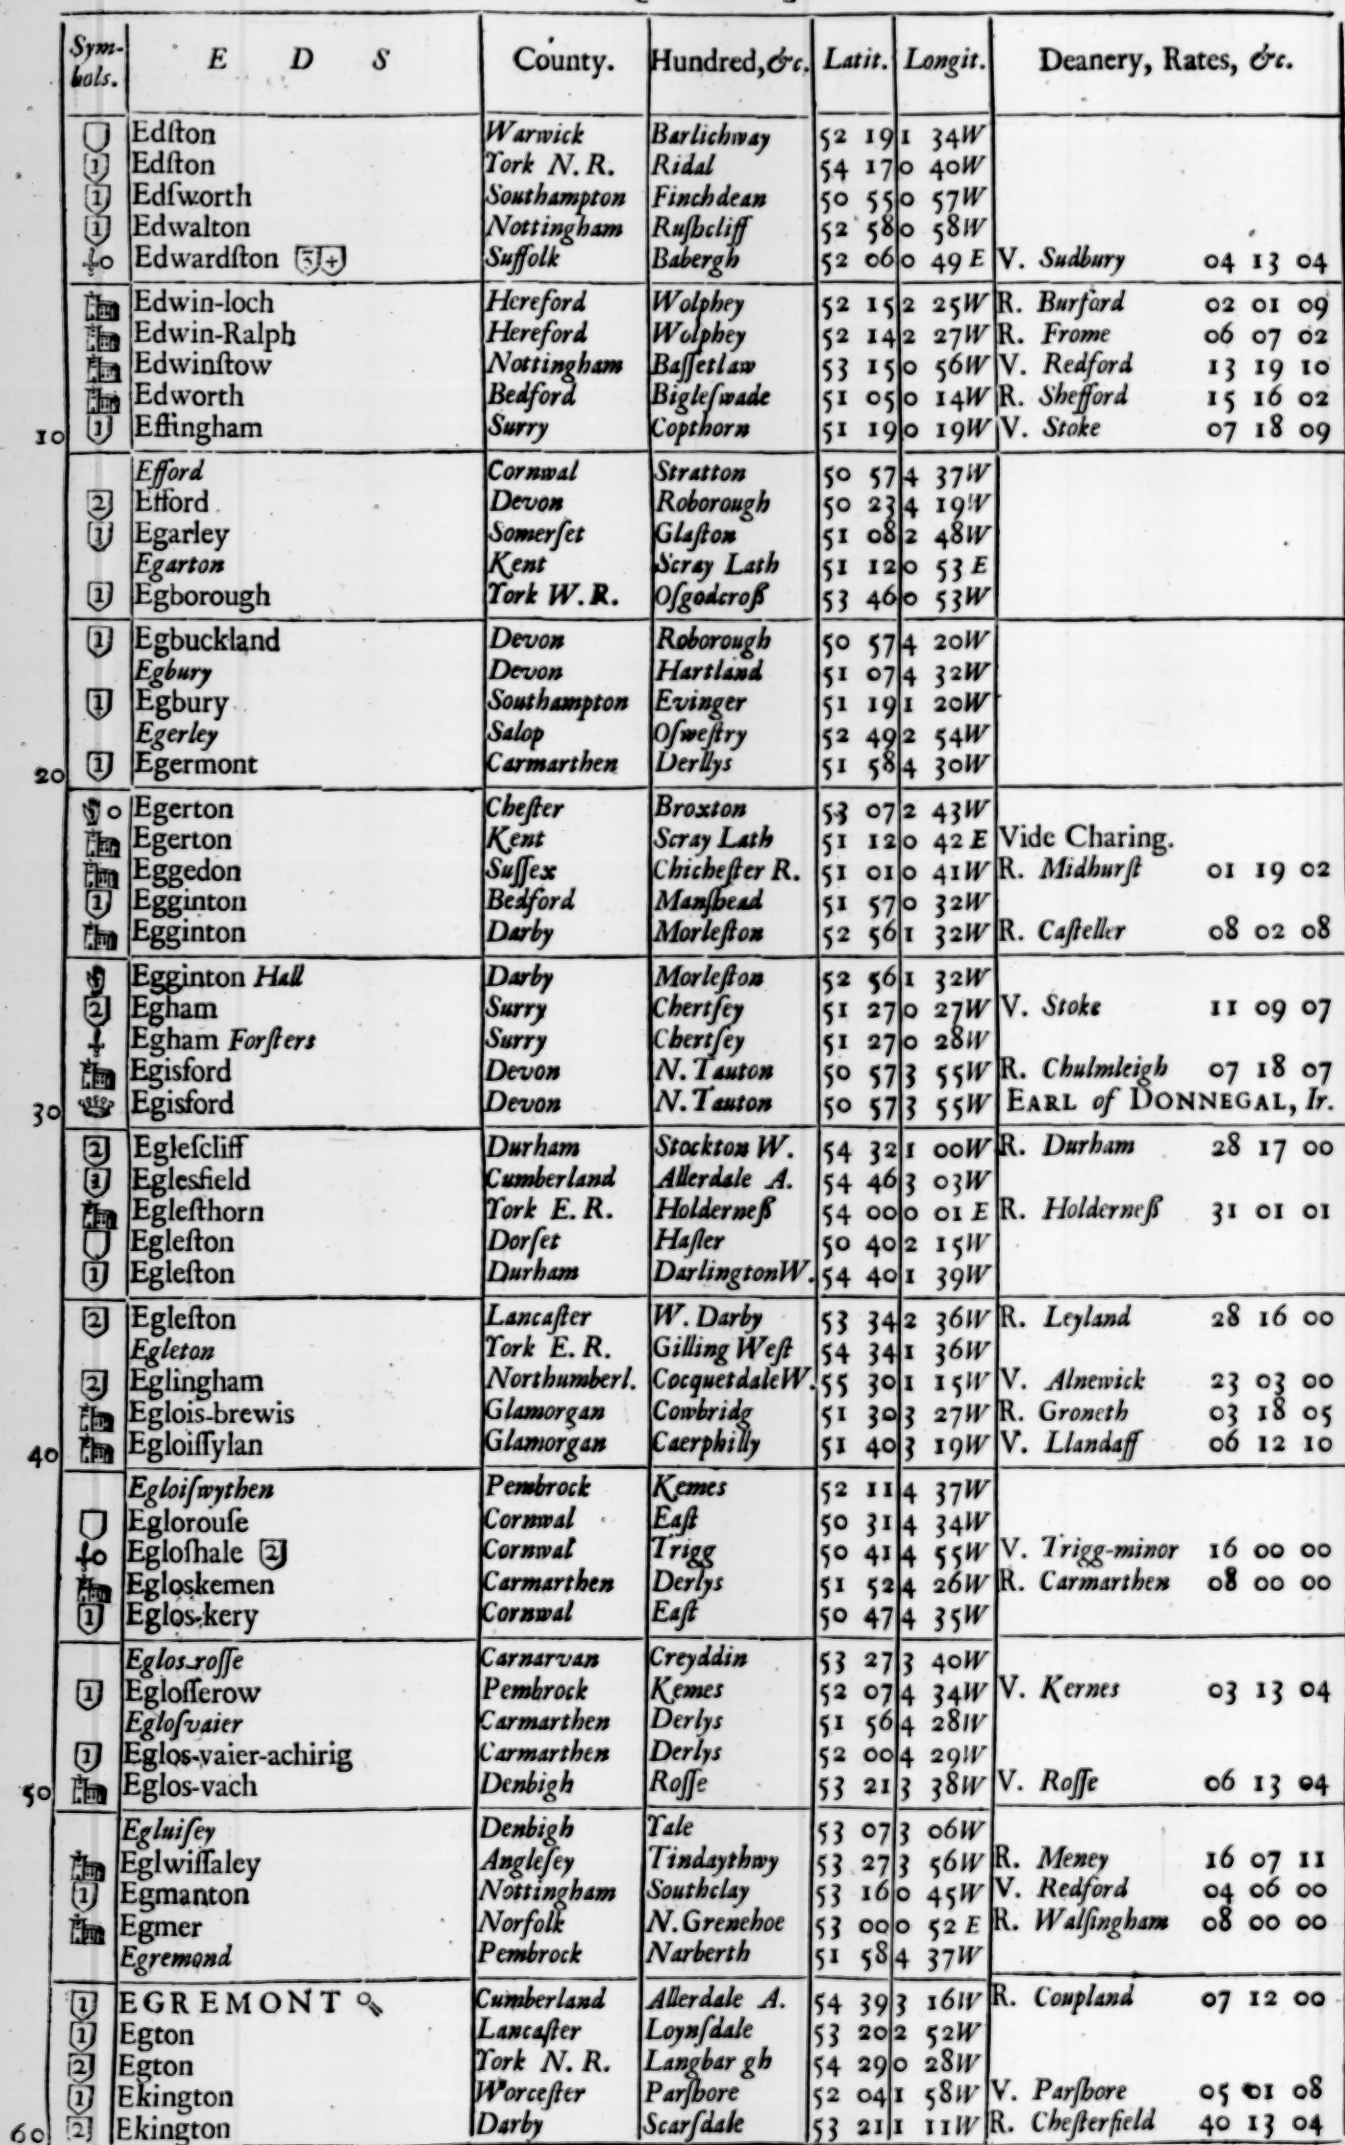 Sym-bols. E D S County. Hundred, &c. Latit. Longit. Deanery, Rates, &c.
1 Edſton Warwick Barlichway 52 19 1 34W
1 Edſton York N. R. Ridal 54 17 0 40W
1 Edſworth Southampton Finchdean 50 55 0 57W
1 Edwalton Nottingham Ruſhcliff 52 58 0 58W
o Edwardſton 5 + Suffolk Babergh 52 06 0 49 E V. Sudbury 04 13 04
Edwin-loch Hereford Wolphey 52 15 2 25W R. Burford 02 01 09
Edwin-Ralph Hereford Wolphey 52 14 2 27W R. Frome 06 07 02
Edwinſtow Nottingham Baſſetlaw 53 15 0 56W V. Redford 13 19 10
Edworth Bedford Bigleſwade 51 05 0 14W R. Shefford 15 16 02
10 1 Effingham Surry Copthorn 51 19 0 19W V. Stoke 07 18 09
Efford Cornwal Stratton 50 57 4 37W
2 Efford Devon Roborough 50 23 4 19W
1 Egarley Somerſet Glaſton 51 08 2 48W
Egarton Kent Scray Lath 51 12 0 53 E
1 Egborough York W. R. Oſgodcroß 53 46 0 53W
1 Egbuckland Devon Roborough 50 57 4 20W
Egbury Devon Hartland 51 07 4 32W
1 Egbury Southampton Evinger 51 19 1 20W
Egerley Salop Oſweſtry 52 49 2 54W
20 1 Egermont Carmarthen Derllys 51 58 4 30W
o Egerton Cheſter Broxton 53 07 2 43W
Egerton Kent Scray Lath 51 12 0 42 E Vide Charing.
Eggedon Suſſex Chicheſter R. 51 01 0 41W R. Midhurſt 01 19 02
1 Egginton Bedford Manſhead 51 57 0 32W
Egginton Darby Morleſton 52 56 1 32W R. Caſteller 08 02 08
Egginton Hall Darby Morleſton 52 56 1 32W
2 Egham Surry Chertſey 51 27 0 27W V. Stoke 11 09 07
Egham Forſters Surry Chertſey 51 27 0 28W
Egisford Devon N. Tauton 50 57 3 55W R. Chulmleigh 07 18 07
30 Egisford Devon N. Tauton 50 57 3 55W EARL of DONNEGAL, Ir.
2 Egleſcliff Durham Stockton W. 54 32 1 00W R. Durham 28 17 00
1 Eglesfield Cumberland Allerdale A. 54 46 3 03W
Egleſthorn York E. R. Holderneß 54 00 0 01 E R. Holderneß 31 01 01
Egleſton Dorſet Haſler 50 40 2 15W
1 Egleſton Durham Darlington W. 54 40 1 39W
2 Egleſton Lancaſter W. Darby 53 34 2 36W R. Leyland 28 16 00
Egleton York E. R. Gilling Weſt 54 34 1 36W
2 Eglingham Northumberl. Cocquetdale W. 55 30 1 15W V. Alnewick 23 03 00
Eglois-brewis Glamorgan Cowbridg 51 30 3 27W R. Groneth 03 18 05
40 Egloiſſylan Glamorgan Caerphilly 51 40 3 19W V. Llandaff 06 12 10
Egloiſwythen Pembrock Kemes 52 11 4 37W
Eglorouſe Cornwal Eaſt 50 31 4 34W
o Egloſhale 2 Cornwal Trigg 50 41 4 55W V. Trigg-minor 16 00 00
Egloskemen Carmarthen Derlys 51 52 4 26W R. Carmarthen 08 00 00
1 Eglos-kery Cornwal Eaſt 50 47 4 35W
Eglos-roſſe Carnarvan Creyddin 53 27 3 40W
1 Egloſſerow Pembrock Kemes 52 07 4 34W V. Kernes 03 13 04
Egloſvaier Carmarthen Derlys 51 56 4 28W
1 Eglos-vaier-achirig Carmarthen Derlys 52 00 4 29W
50 Eglos-vach Denbigh Roſſe 53 21 3 38W V. Roſſe 06 13 04
Egluiſey Denbigh Yale 53 07 3 06W
Eglwiſſaley Angleſey Tindaythwy 53 27 3 56W R. Meney 16 07 11
1 Egmanton Nottingham Southclay 53 16 0 45W V. Redford 04 06 00
Egmer Norfolk N. Grenehoe 53 00 0 52 E R. Walſingham 08 00 00
Egremond Pembrock Narberth 51 58 4 37W
1 EGREMONT Cumberland Allerdale A. 54 39 3 16W R. Coupland 07 12 00
1 Egton Lancaſter Loynſdale 53 20 2 52W
2 Egton York N. R. Langbargh 54 29 0 28W
1 Ekington Worceſter Parſhore 52 04 1 58W V. Parſhore 05 01 08
60 2 Ekington Darby Scarſdale 53 21 1 11W R. Cheſterfield 40 13 04